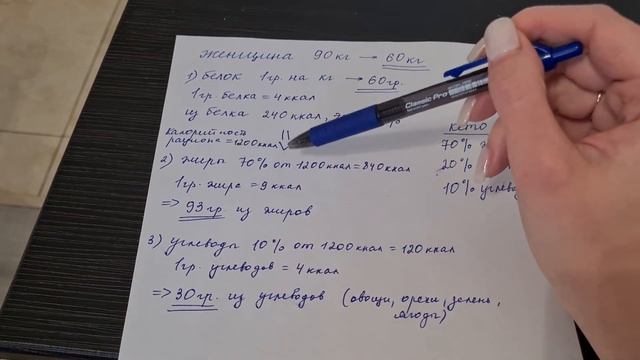 женщина 90 кг → 60 кг
1) Белок 1 гр. на кг → 60 гр.
1 гр. белка = 4 ккал
из белка 240 ккал,
калорийность
рациона = 1200 ккал
2) жиры 70% от 1200 ккал = 840 ккал
1 гр. жира = 9 ккал
=> 93 гр. из жиров
3) углеводы 10% от 1200 ккал = 120 ккал
1 гр. углеводов = 4 ккал
=> 30 гр. из углеводов (овощи, орехи, зелень,
ягоды)
Кето
70%
20%
10% углево
Classic Pro